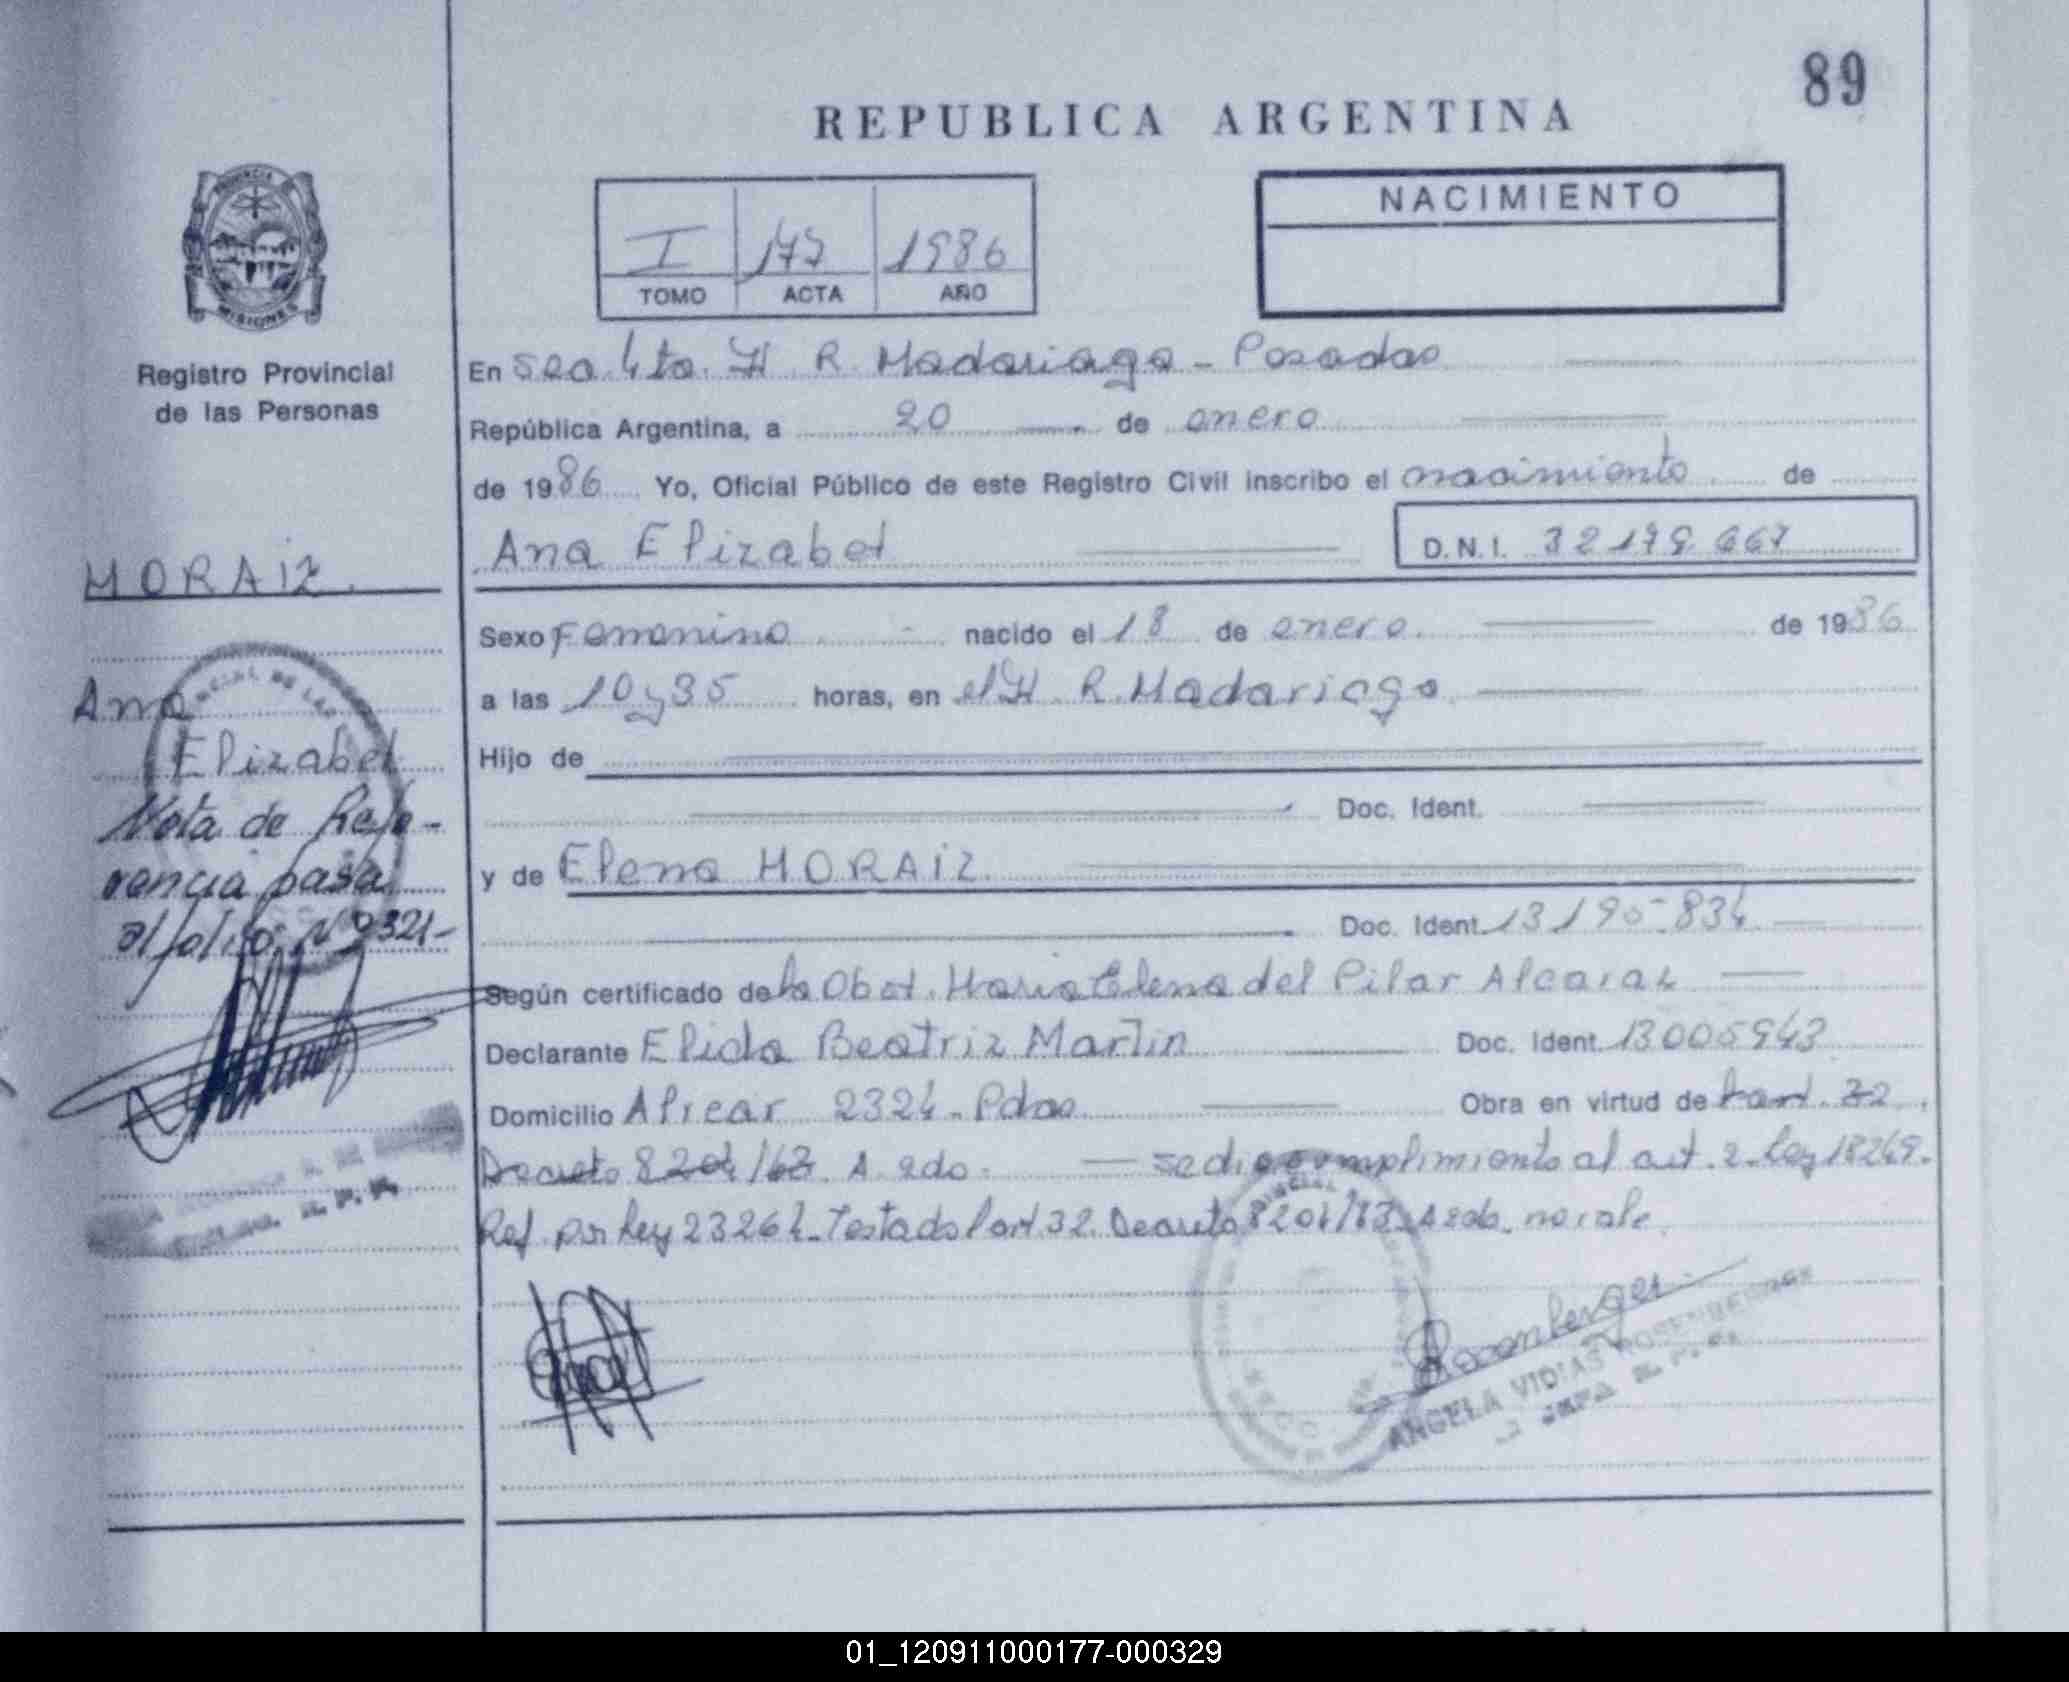 89
REPUBLICA ARGENTINA
NACIMIENTO
I 177 1986
TOMO ACTA AÑO
PROVINCIA
MISIONES
Registro Provincial
de las Personas
MORAIZ.
Ana
Elizabet
Nota de Refe-
rencia pasa
al folio Nº 321-
En Sec. 4ta. H R. Madariaga - Posadas
República Argentina, a 20 de enero
de 1986 Yo, Oficial Público de este Registro Civil inscribo el nacimiento de
Ana Elizabet D.N.I. 32.179.667
Sexo Femenino nacido el 18 de enero. de 1986
a las 10 y 35 horas, en el H. R. Madariaga
Hijo de
Doc. Ident.
y de Elena MORAIZ
Doc. Ident. 13195.834
Según certificado de la Obst. Maria Elena del Pilar Alcaraz
Declarante Elida Beatriz Martin Doc. Ident. 13005943
Domicilio Alvear 2324 - Pdas Obra en virtud de l'art. 32
Decreto 8204/63 A. edo. se dio cumplimiento al art. 2 - Ley 18269.
Ref. por Ley 23264 - Testado l'art. 32. Decreto 8204/63 - A edo. no vale.
Rosemberger
ANGELA VIDIAS ROSEMBERGER
JEFA R. P. P.
01_120911000177-000329